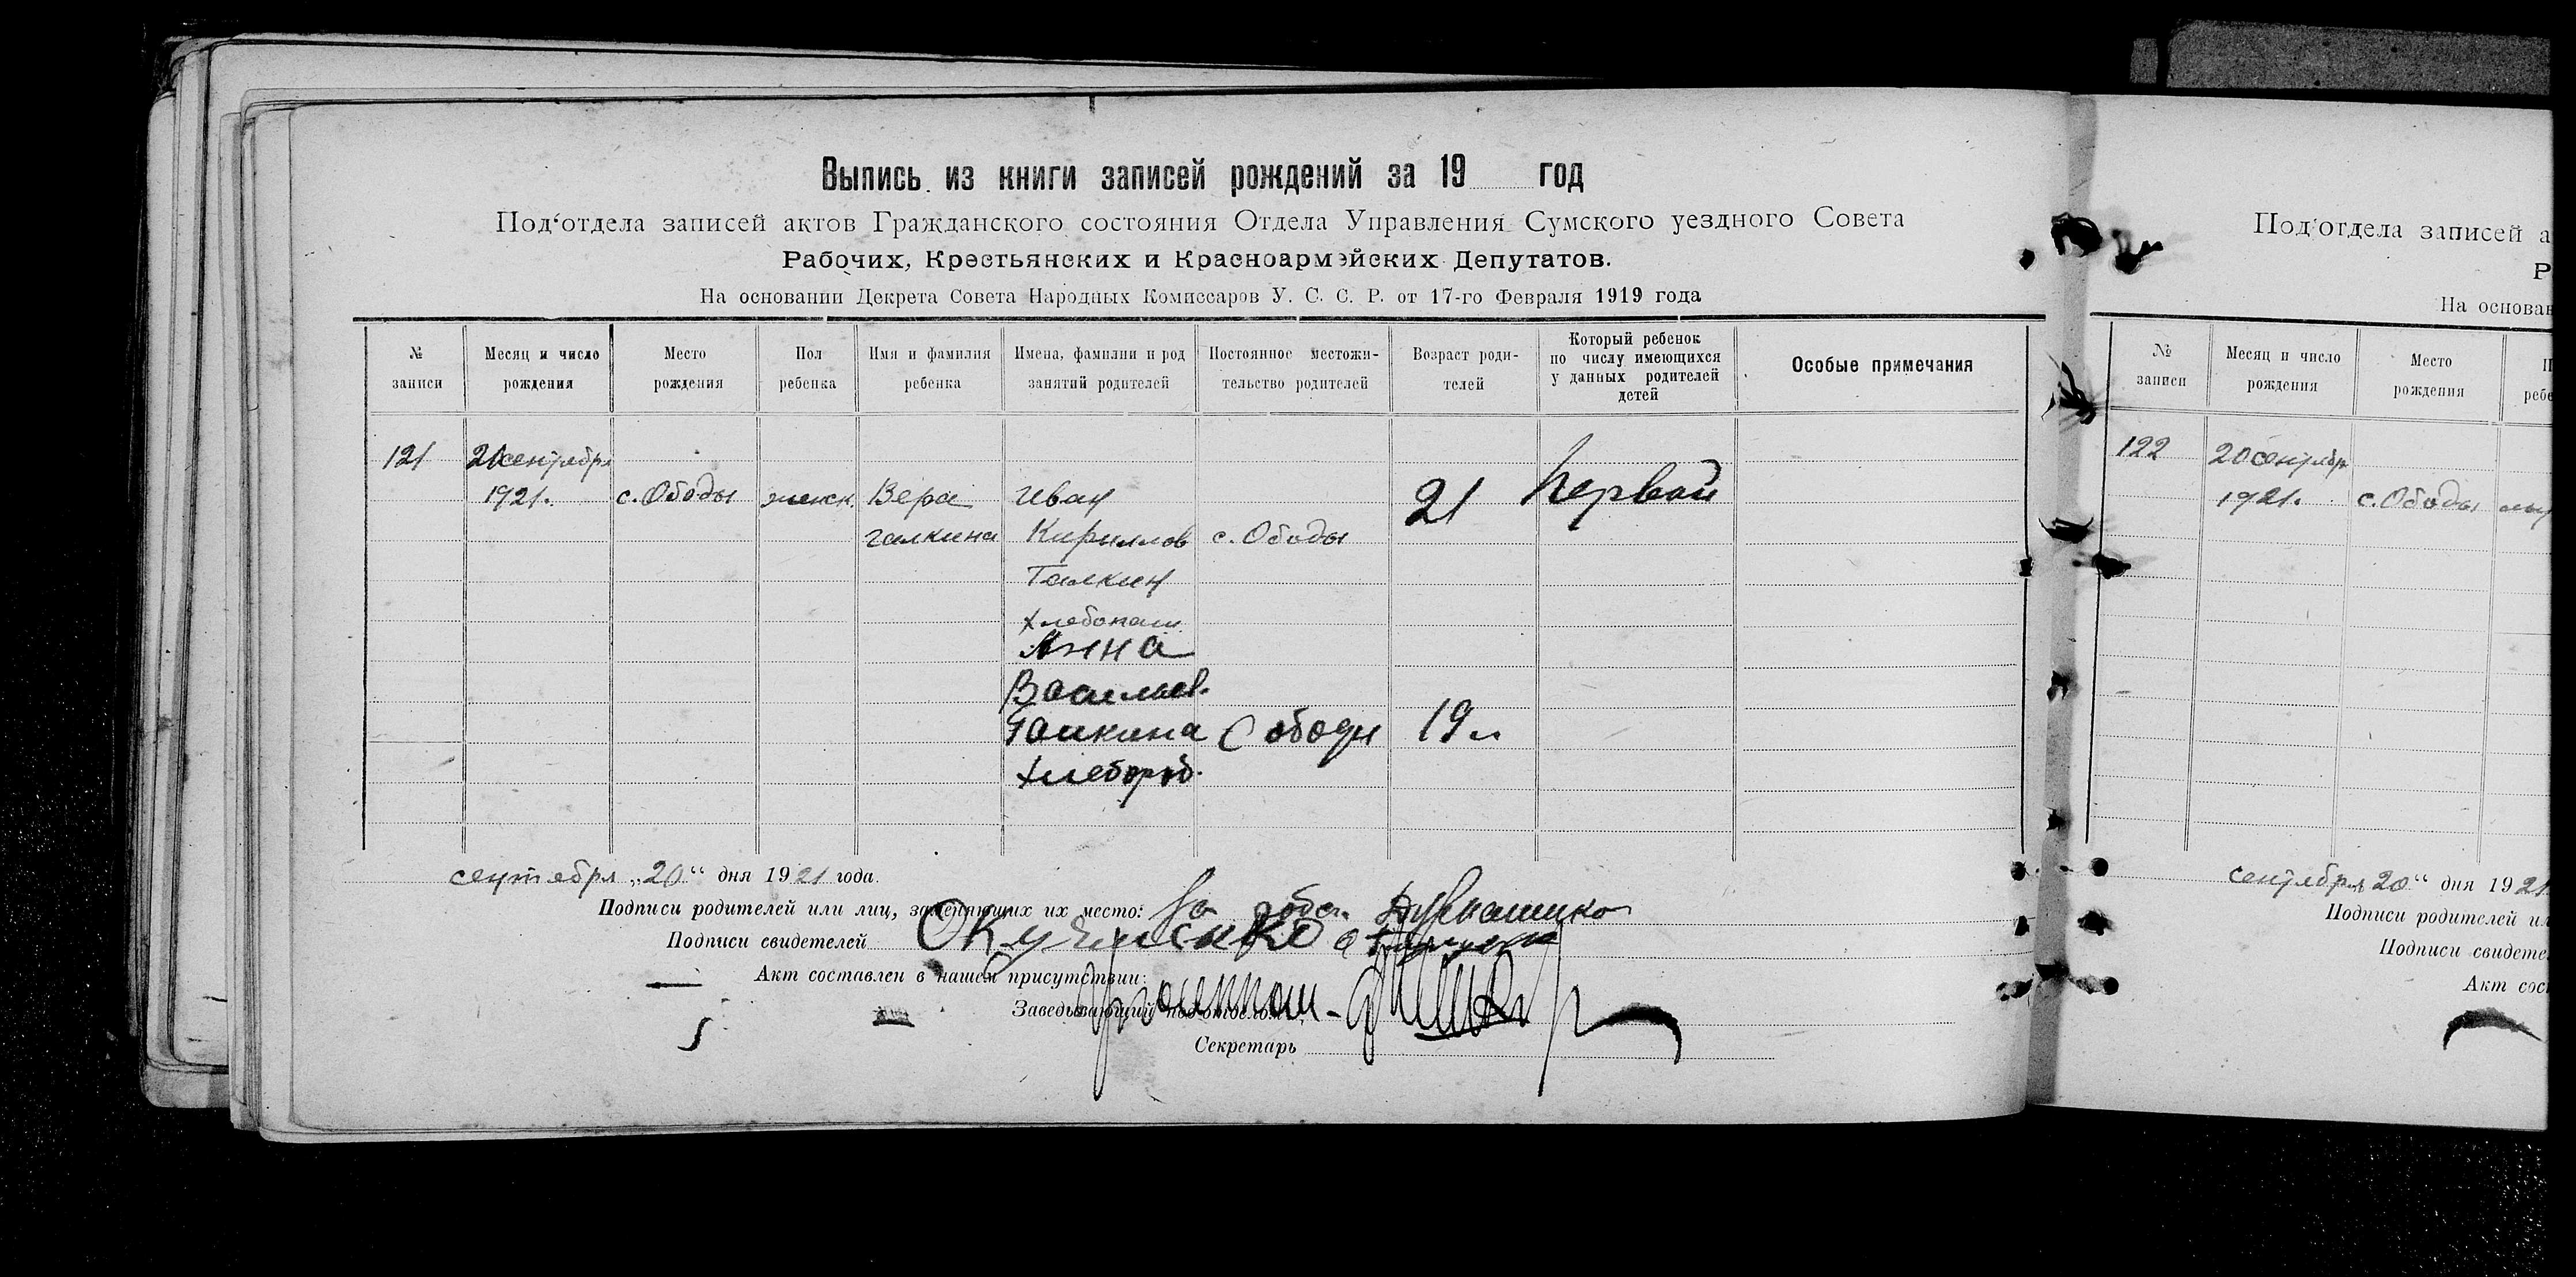 Выпись из книги записей рождений за 19 год
Под‘отдела записей актов Гражданского состояния Отдела Управления Сумского уездного Совета
Рабочих, Крестьянских и Красноармэйских Депутатов.
На основании Декрета Совета Народных Комиссаров У. С. С. Р. от 17-го Февраля 1919 года
№ записи
Месяц и число рождения
Место рождения
Пол ребенка
Имя и фамилия ребенка
Имена, фамилии и род занятий родителей
Постоянное местожительство родителей
Возраст родителей
Который ребенок по числу имеющихся у данных родителей детей
Особые примечания
121 сентября
1921. с. Ободы женск. Вера Иван 21 Первый
Галкина Кириллов с. Ободы
Галкин
хлебопаш.
Анна
Васильев.
Галкина С Ободы 19 л
хлебороб.
сентября „20“ дня 1921 года.
Подписи родителей или лиц, заменяющих их место: За
Подписи свидетелей
Акт составлен в нашем присутствии:
Заведывающий
Секретарь
Под‘отдела записей а
Р
На основан
№ записи
Месяц и число рождения
Место рождения
П
ребе
122 20 сентября
1921. с. Ободы
сентября 20“ дня 1921
Подписи родителей ил
Подписи свидете
Акт сос